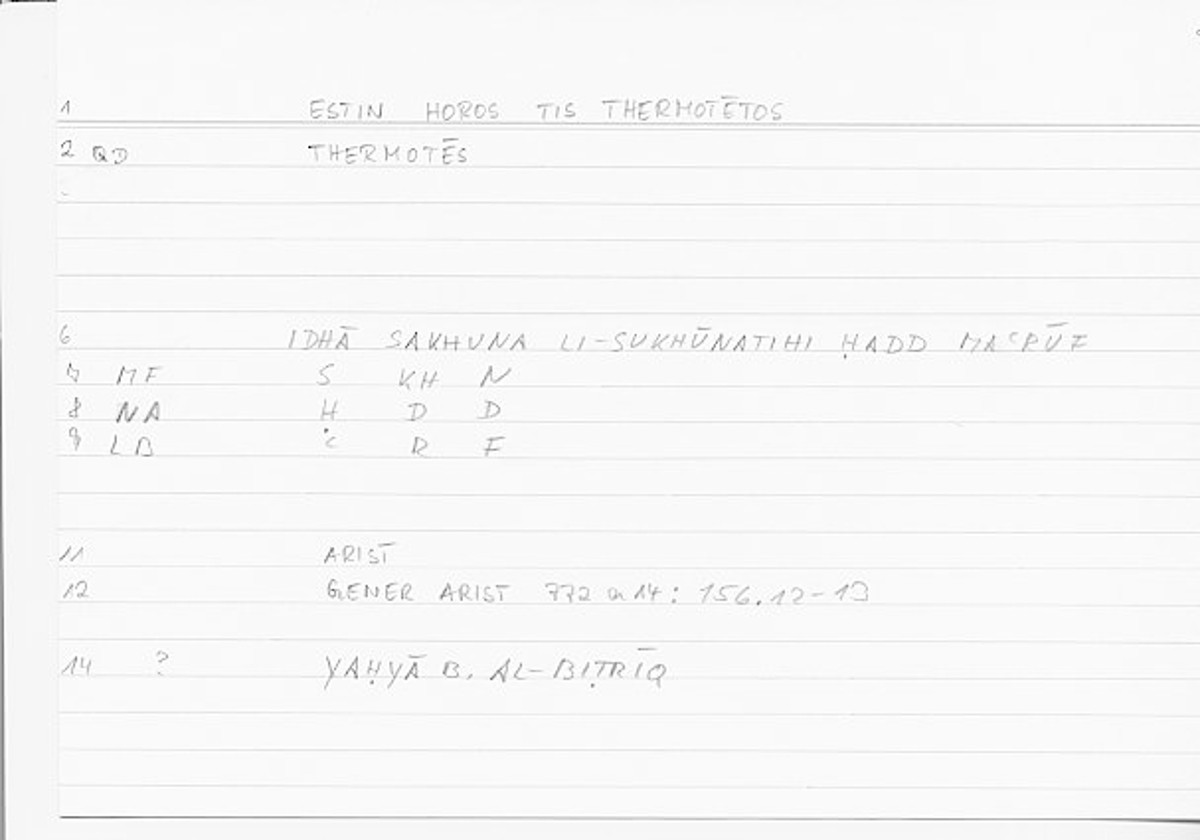 1 ESTIN HOROS TIS THERMOTĒTOS
2 QD THERMOTĒS
6 IDHĀ SAKHUNA LI-SUKHŪNATIHI ḤADD MAʿRŪF
7 MF S KH N
8 NA Ḥ D D
9 LB ʿ R F
11 ARIST
12 GENER ARIST 772 a 14: 156.12-13
14 ? YAḤYĀ B. AL-BIṬRĪQ